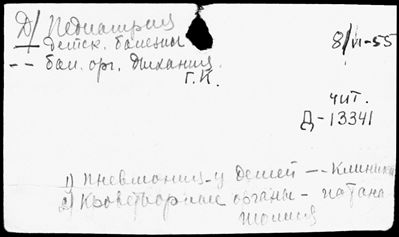 Д/ Педиатрия
— детск. болезни 8/VI-55
-- бол. орг. дыхания
Г.К.
чит.
Д-13341
1) Пневмония-у детей -- клиника
2) Кроветворные органы - патана
томия